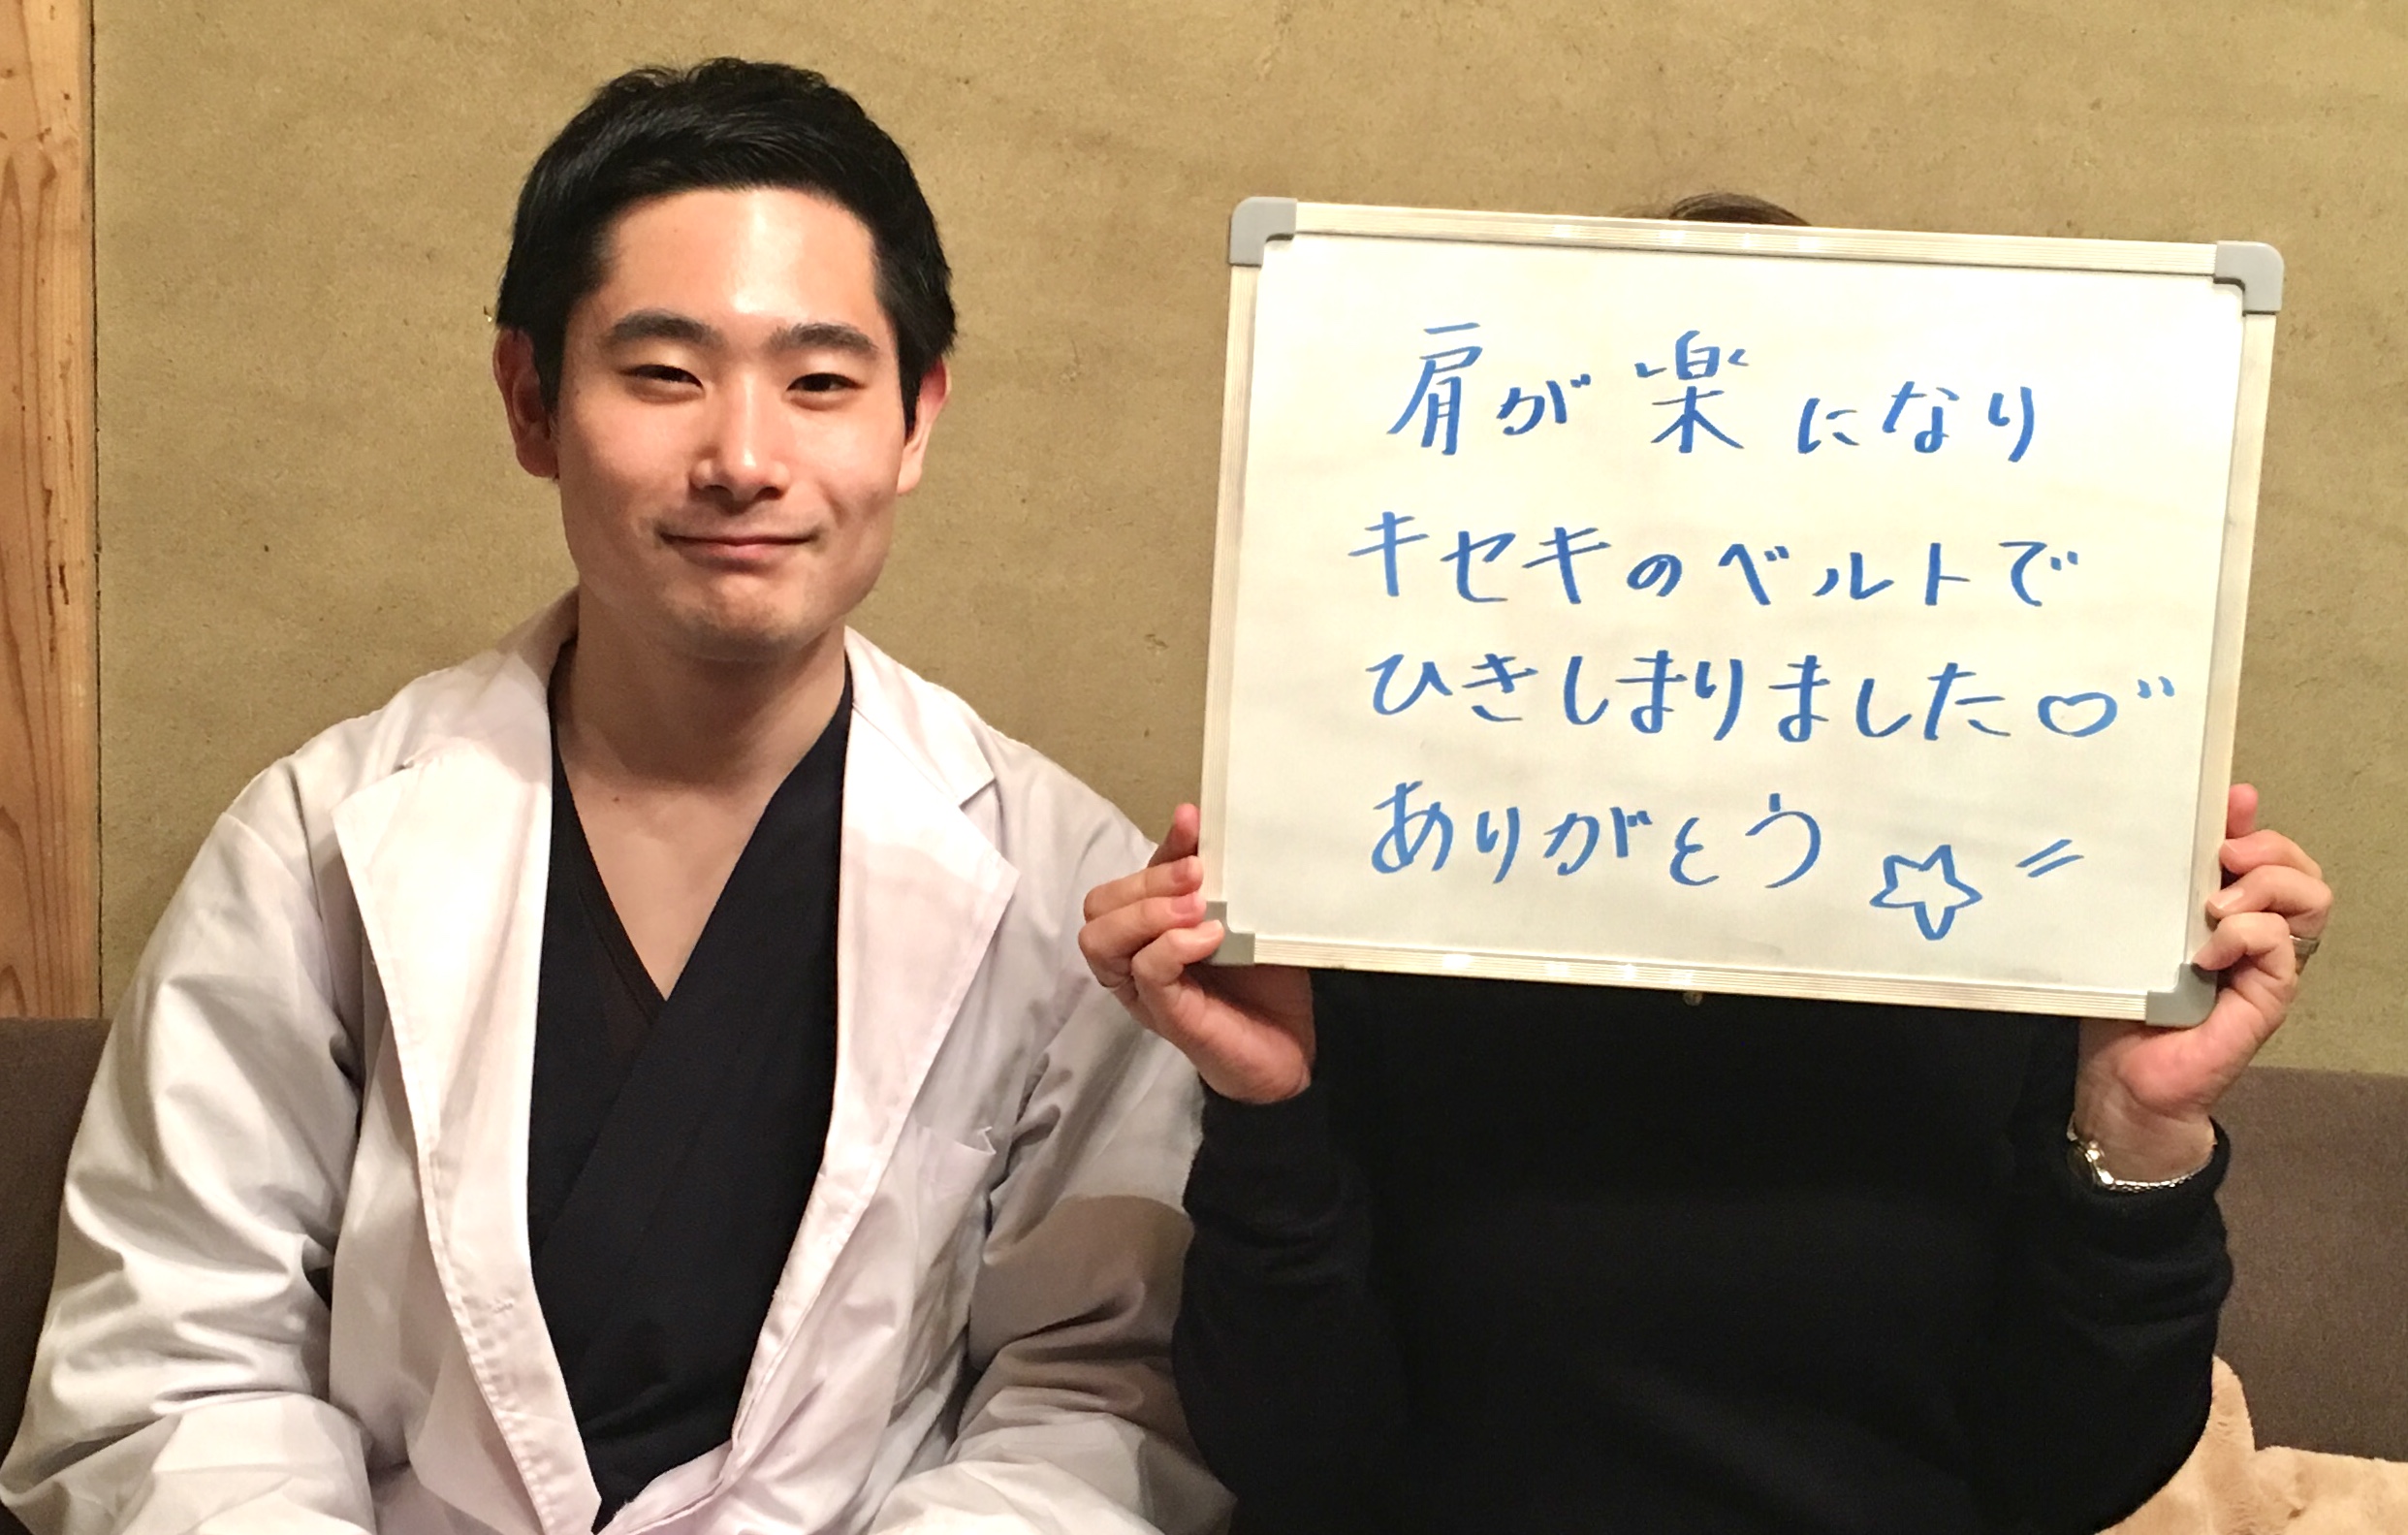 肩が楽になり
キセキのベルトで
ひきしまりました♡
ありがとう☆